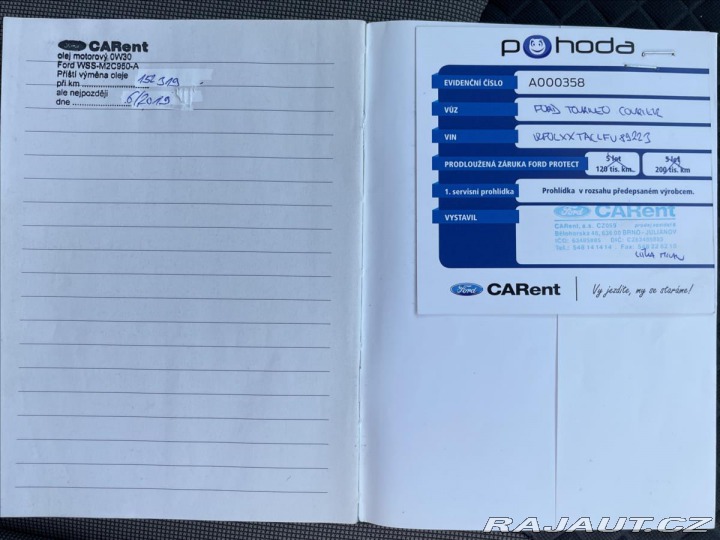 Ford CARent
olej motorový 0W30
Ford WSS-M2C950-A
Příští výměna oleje
při km 152 319
ale nejpozději
dne 6/2019
pohoda
EVIDENČNÍ ČÍSLO A000358
VŮZ FORD TOURNEO COURIER
VIN
PRODLOUŽENÁ ZÁRUKA FORD PROTECT 5 let 120 tis. km 5 let 200 tis. km
1. servisní prohlídka Prohlídka v rozsahu předepsaném výrobcem.
VYSTAVIL Ford CARent
CARent, a.s.
Bělohorská
Ford CARent Vy jezdíte, my se staráme!
RAJAUT.CZ